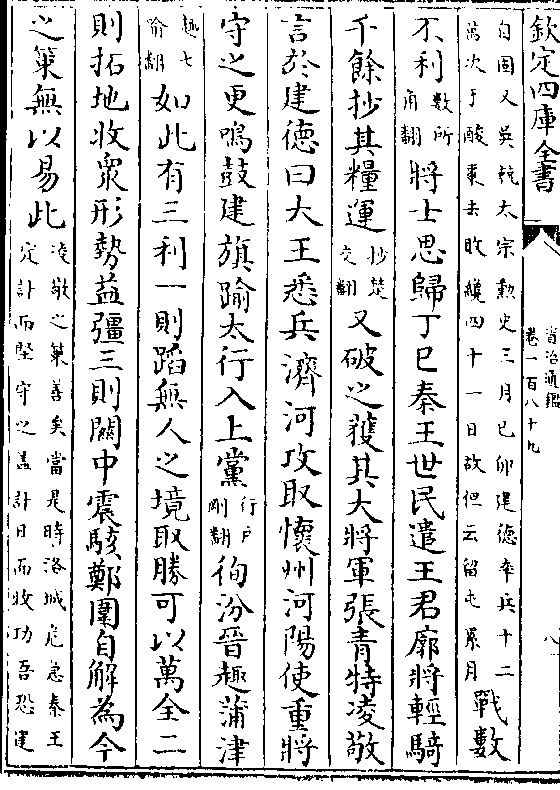 欽定四庫全書
資治通鑑
卷一百八十九
八
自固又吳兢太宗勲史三月己卯建德率兵十二
萬次于酸棗去敗纔四十一日故但云留屯累月
戰數
不利數所角翻將士思歸丁巳秦王世民遣王君廓將輕騎
千餘抄其糧運抄楚交翻又破之獲其大將軍張青特凌敬
言於建德曰大王悉兵濟河攻取懷州河陽使重將
守之更鳴鼓建旗踰太行入上黨行戶剛翻徇汾晉趣蒲津
趣七喻翻如此有三利一則蹈無人之境取勝可以萬全二
則拓地收衆形勢益彊三則關中震駭鄭圍自解為今
之策無以易此
凌敬之策善矣當是時洛城危急秦王
定計而堅守之蓋計日而收功吾恐建